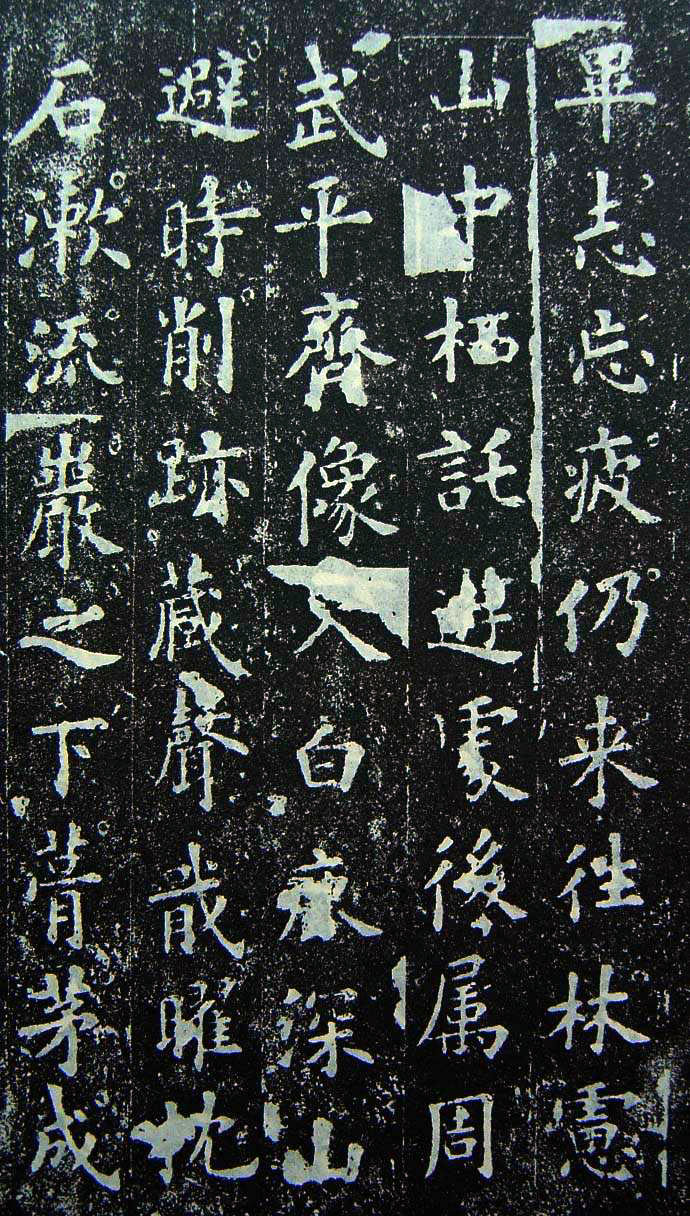 畢志忘疲仍来徃林慮
山中栖託遊處後属周
武平齊像入白鹿深山
避時削跡藏聲戢曜枕
石漱流巖之下葺茅成